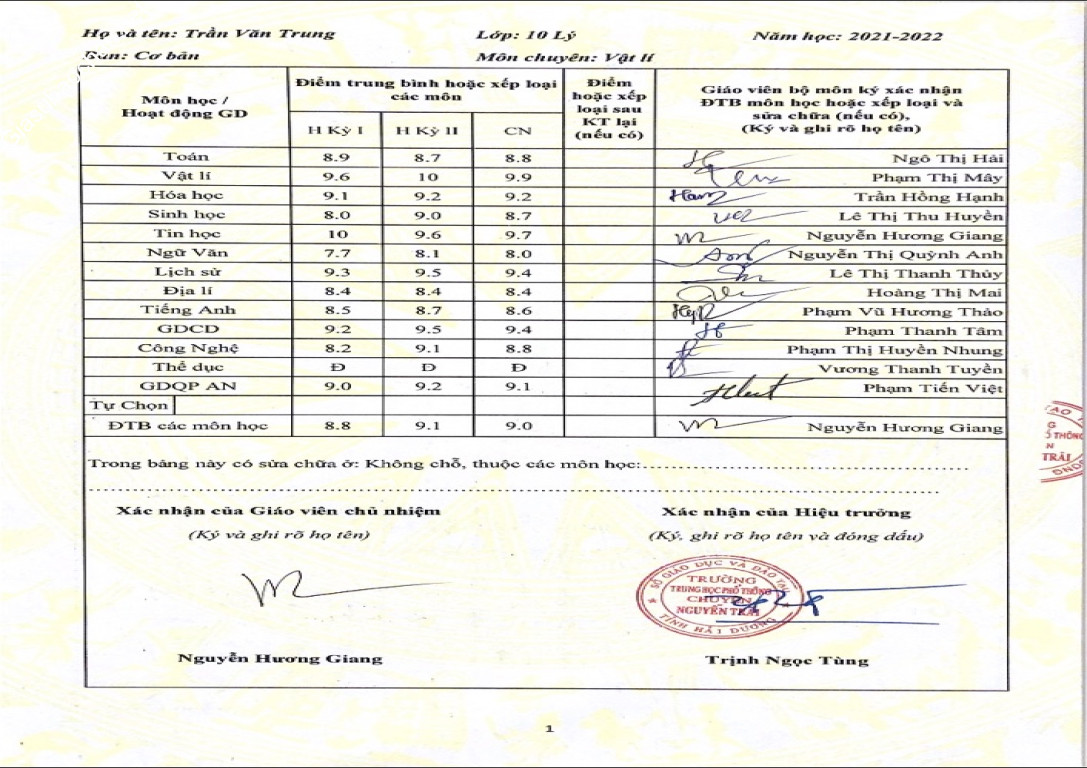 Họ và tên: Trần Văn Trung Lớp: 10 Lý Năm học: 2021-2022
Ban: Cơ bản Môn chuyên: Vật lí
Môn học / Hoạt động GD
Điểm trung bình hoặc xếp loại các môn
H Kỳ I H Kỳ II CN
Điểm hoặc xếp loại sau KT lại (nếu có)
Giáo viên bộ môn ký xác nhận
ĐTB môn học hoặc xếp loại và
sửa chữa (nếu có),
(Ký và ghi rõ họ tên)
Toán 8.9 8.7 8.8 Ngô Thị Hải
Vật lí 9.6 10 9.9 Phạm Thị Mây
Hóa học 9.1 9.2 9.2 Trần Hồng Hạnh
Sinh học 8.0 9.0 8.7 Lê Thị Thu Huyền
Tin học 10 9.6 9.7 Nguyễn Hương Giang
Ngữ Văn 7.7 8.1 8.0 Nguyễn Thị Quỳnh Anh
Lịch sử 9.3 9.5 9.4 Lê Thị Thanh Thủy
Địa lí 8.4 8.4 8.4 Hoàng Thị Mai
Tiếng Anh 8.5 8.7 8.6 Phạm Vũ Hương Thảo
GDCD 9.2 9.5 9.4 Phạm Thanh Tâm
Công Nghệ 8.2 9.1 8.8 Phạm Thị Huyền Nhung
Thể dục Đ Đ Đ Vương Thanh Tuyền
GDQP AN 9.0 9.2 9.1 Phạm Tiến Việt
Tự Chọn
ĐTB các môn học 8.8 9.1 9.0 Nguyễn Hương Giang
Trong bảng này có sửa chữa ở: Không chỗ, thuộc các môn học:
Xác nhận của Giáo viên chủ nhiệm Xác nhận của Hiệu trưởng
(Ký và ghi rõ họ tên) (Ký, ghi rõ họ tên và đóng dấu)
SỞ GIÁO DỤC VÀ ĐÀO TẠO
TRƯỜNG
TRUNG HỌC PHỔ THÔNG
CHUYÊN
NGUYỄN TRÃI
TỈNH HẢI DƯƠNG
Nguyễn Hương Giang Trịnh Ngọc Tùng
1